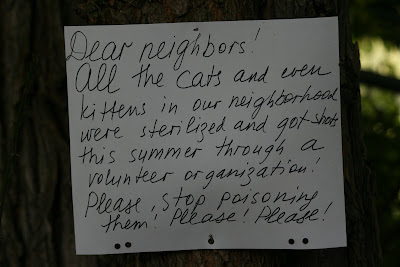 Dear neighbors!
All the cats and even
kittens in our neighborhood
were sterilized and got shots
this summer through a
volunteer organization!
Please, stop poisoning
them! Please! Please!